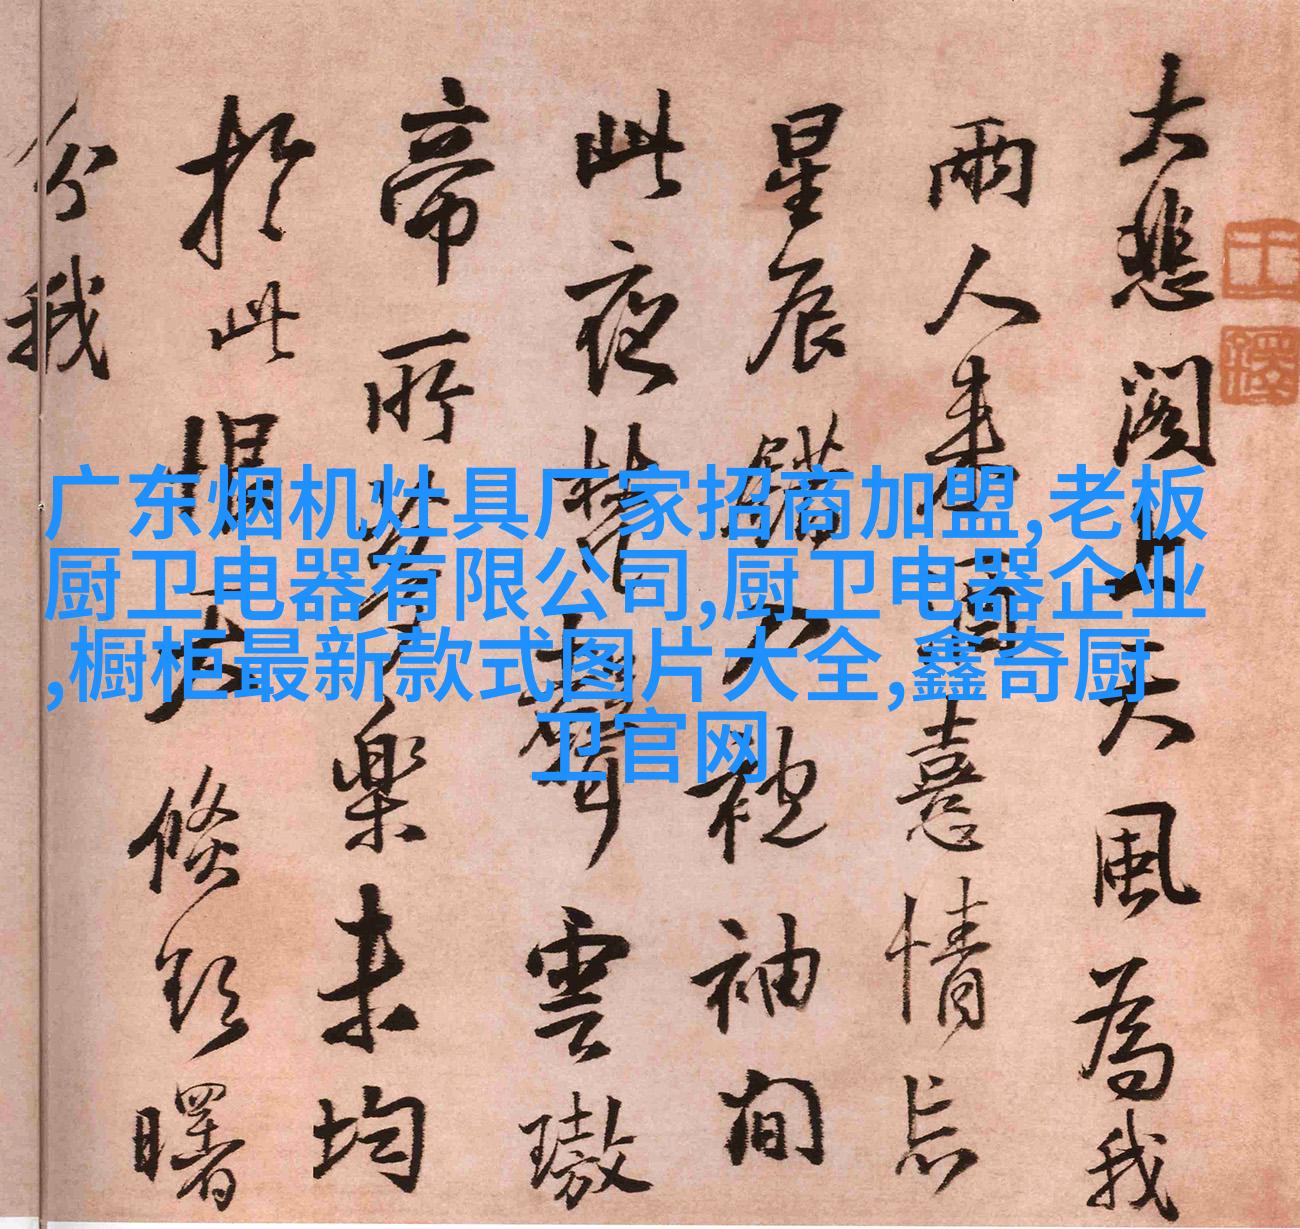 广东烟机灶具厂家招商加盟,老板
厨卫电器有限公司,厨卫电器企业
,橱柜最新款式图片大全,鑫奇厨
卫官网
大悲閣上天風為我
兩人來憙情忘
星辰錯入袍袖間
此夜聲雲璈
帝所樂未均
於此倏曙
分我